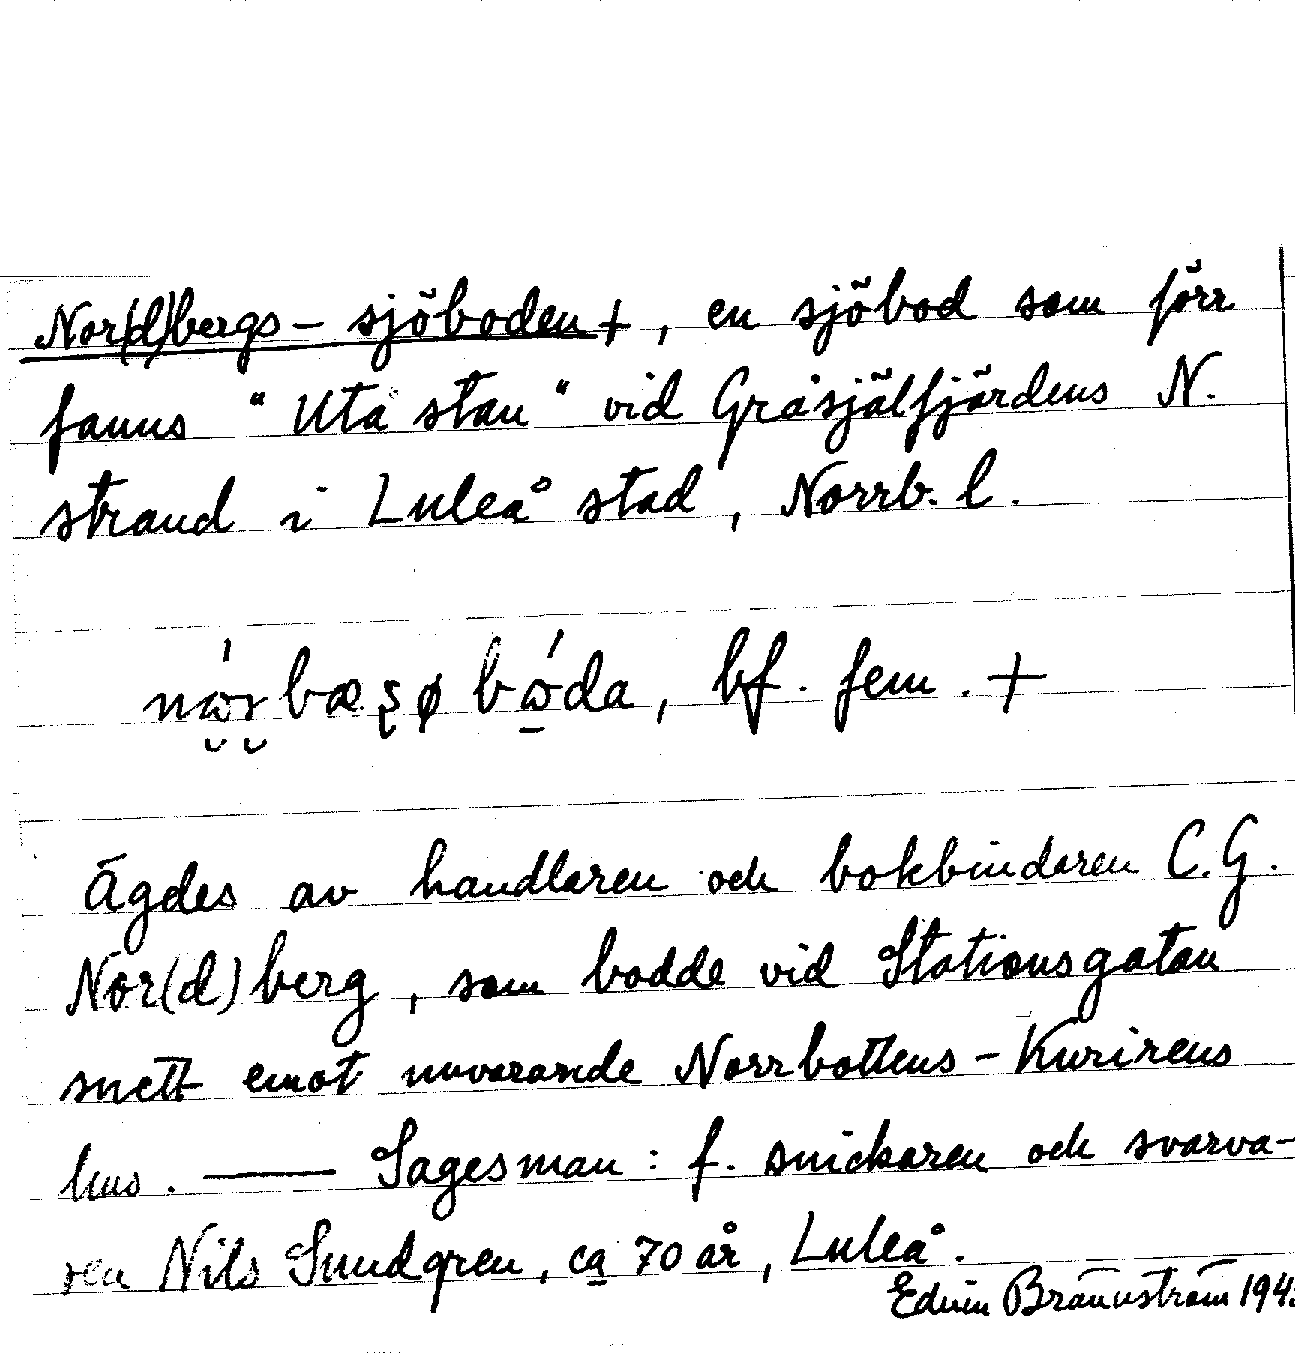 Nor(d)bergs-sjöboden +, en sjöbod som förr
fanns "Utå stan" vid Gråsjälfjärdens N.
strand i Luleå stad, Norrb. l.
bf. fem. +
Ägdes av handlaren och bokbindaren C.G.
Nor(d)berg, som bodde vid Stationsgatan
snett emot nuvarande Norrbottens-Kurirens
hus. —— Sagesman: f. snickaren och svarva-
ren Nils Sundgren, ca 70 år, Luleå.
Edvin Brännström 194